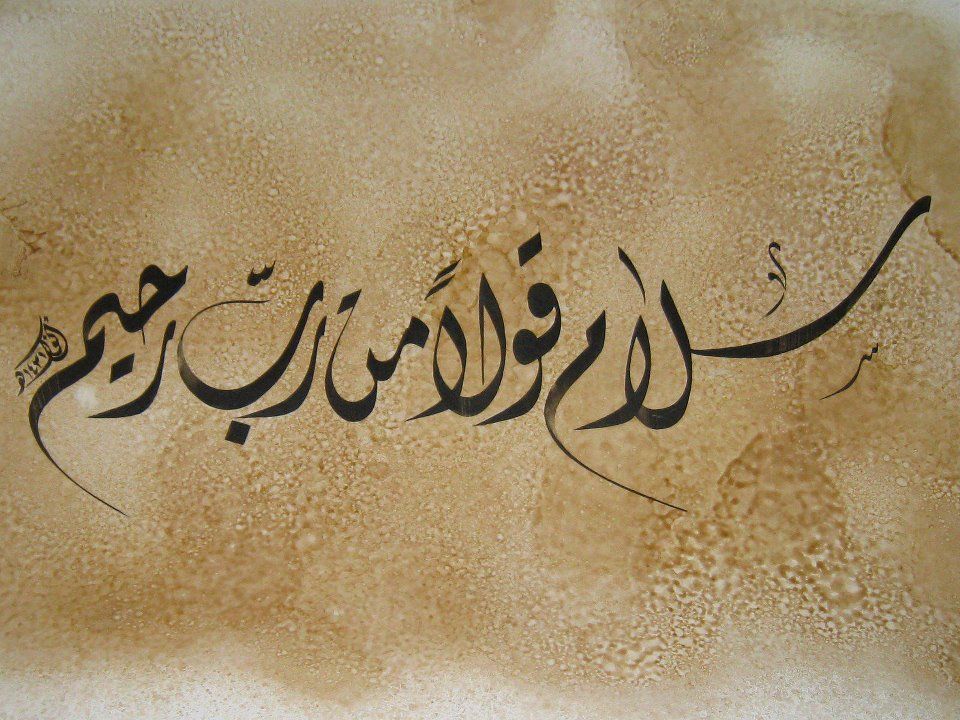 سلام قولاً من ربّ رحيم